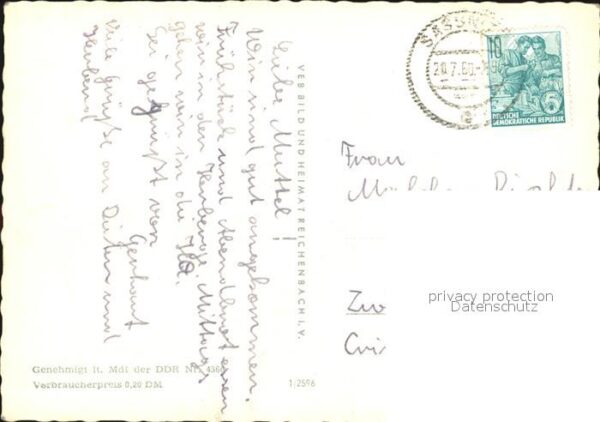 Liebe Mutti!
Wir sind gut angekommen.
Frühstück und Abendbrot essen
wir in der Herberge. Mittags
gehn wir in die HO.
Sei gegrüßt von
Gerhart
Viele Grüße an und
VEB BILD UND HEIMAT REICHENBACH I. V.
Genehmigt lt. MdI der DDR Nr. 4360
Verbraucherpreis 0,20 DM
1/2596
SASSNITZ
20.7.60
10
DEUTSCHE
DEMOKRATISCHE REPUBLIK
Frau
Zw
privacy protection
Datenschutz